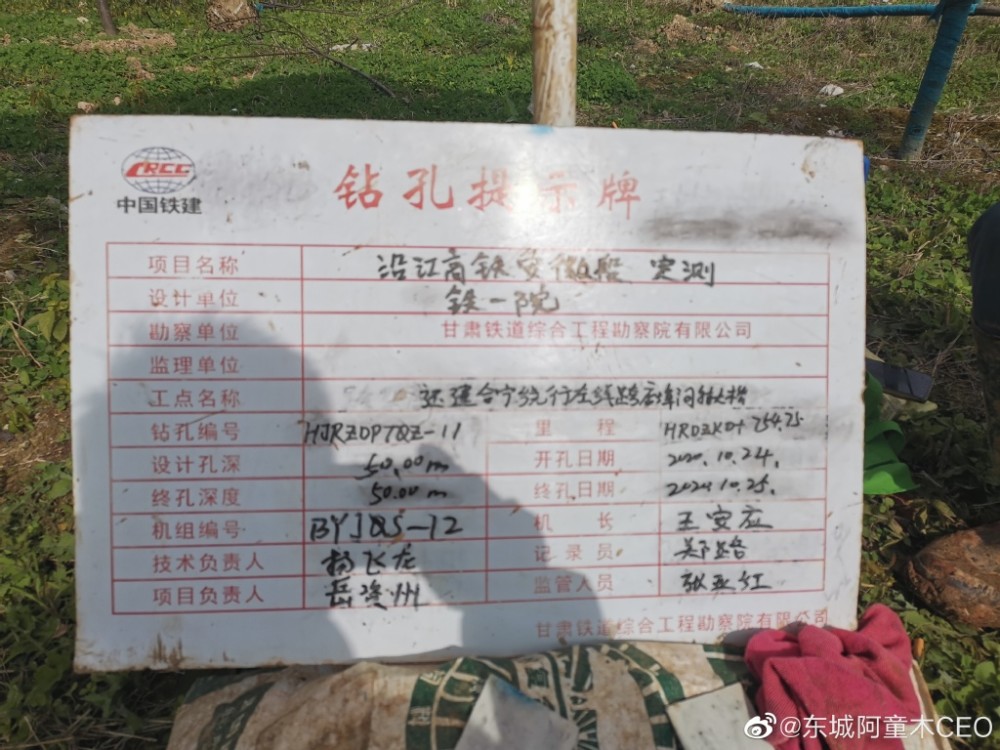 CRCC
中国铁建
钻孔提示牌
项目名称 沿江高铁安徽段 定测
设计单位 铁一院
勘察单位 甘肃铁道综合工程勘察院有限公司
监理单位
工点名称
钻孔编号 HJRZDPTQZ-11 里程 HRDZK01+254.75
设计孔深 50.00m 开孔日期 2020.10.24.
终孔深度 50.00m 终孔日期 2020.10.25.
机组编号 BYJQS-12 机长 王安应
技术负责人 杨飞龙 记录员
项目负责人 监管人员 张亚红
甘肃铁道综合工程勘察院有限公司
@东城阿童木CEO